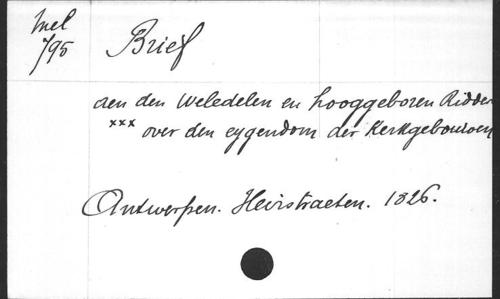 Mel
795
Brief
aen den weledelen en hooggeboren Ridder
*** over den eygendom der Kerkgebouwen
Antwerpen. Heirstraeten. 1826.